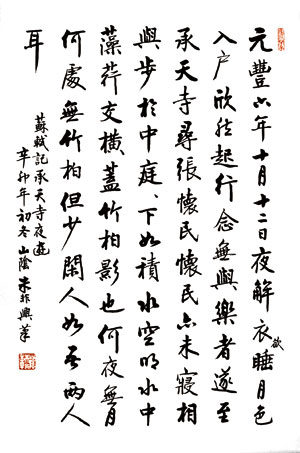 元豐六年十月十二日夜解衣欲睡月色
入户欣然起行念無與樂者遂至
承天寺尋張懷民懷民亦未寢相
與步於中庭、下如積水空明水中
藻荇交橫蓋竹柏影也何夜無月
何處無竹柏但少閑人如吾兩人
耳
蘇軾記承天寺夜遊
辛卯年初冬山陰